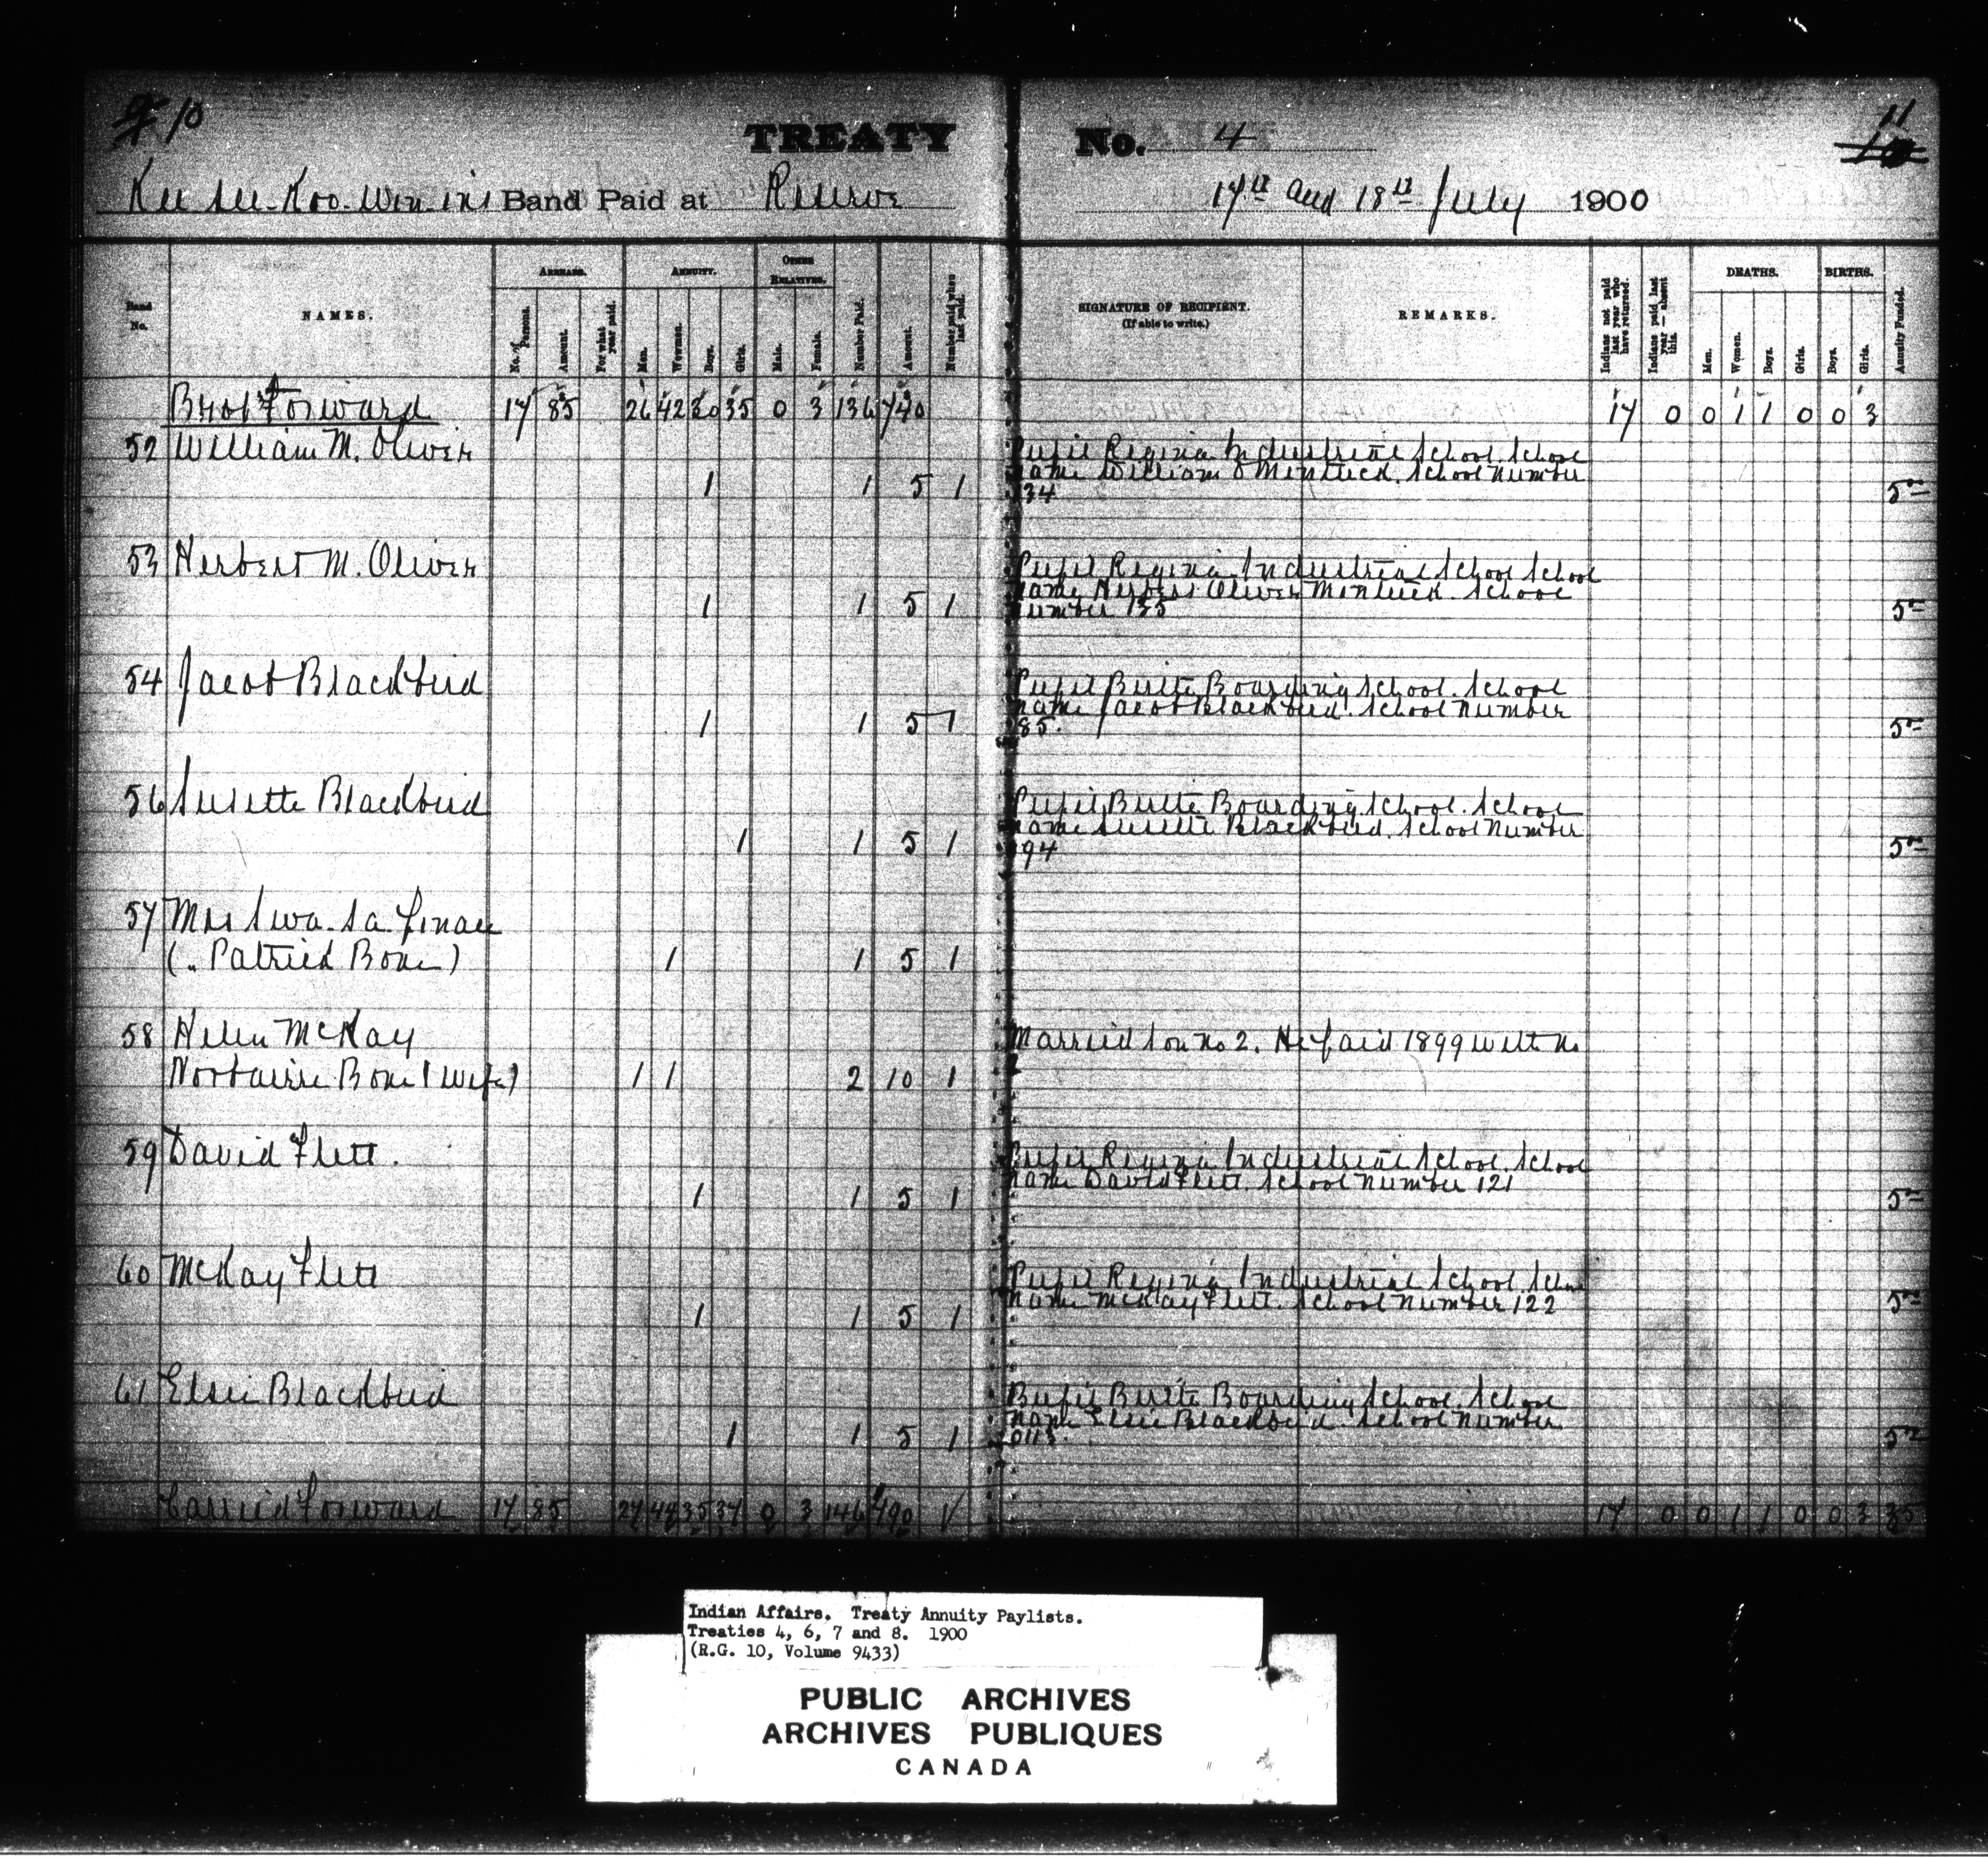 10
11
TREATY No. 4
Kee see-Koo-Wen-in's Band Paid at Reserve 17th and 18th July 1900
Band No.
NAMES.
ARREARS.
No. of Persons.
Amount.
For what year paid.
ANNUITY.
Men.
Women.
Boys.
Girls.
OTHER RELATIVES.
Male.
Female.
Number Paid.
Amount.
Number paid when last paid.
SIGNATURE OF RECIPIENT.
(If able to write.)
REMARKS.
Indians not paid last year who have returned.
Indians paid last year — absent this.
DEATHS.
Men.
Women.
Boys.
Girls.
BIRTHS.
Boys.
Girls.
Annuity Funded.
Brot Forward 17 85 26 42 30 35 0 3 136 740 17 0 0 1 1 0 0 3
52 William M. Oliver
Pupil Regina Industrial School. School
name William O Mentuck. School Number
1 1 5 1 134 5
53 Herbert M. Oliver
Pupil Regina Industrial School School
name Herbert Oliver Mentuck. School
1 1 5 1 number 135 5
54 Jacob Blackbird
Pupil Birtle Boarding School. School
name Jacob Blackbird. School Number
1 1 5 1 85. 5
56 Susette Blackbird
Pupil Birtle Boarding School. School
name Susette Blackbird. School Number
1 1 5 1 94 5
57 Mrs Swa-sa-
(" Patrick Bone) 1 1 5 1
58 Helen McKay
Married son no 2. He paid 1899 with No
Bone (Wife) 1 1 2 10 1 2
59 David Flett.
Pupil Regina Industrial School. School
name David Flett. School number 121
1 1 5 1 5
60 McKay Flett
Pupil Regina Industrial School. School
name McKay Flett. School Number 122
1 1 5 1 5
61 Elsie Blackbird
Pupil Birtle Boarding School. School
name Elsie Blackbird School Number
1 1 5 1 0113. 5
Carried Forward 17 85 27 44 35 37 0 3 146 790 17 0 0 1 1 0 0 3 35
Indian Affairs. Treaty Annuity Paylists.
Treaties 4, 6, 7 and 8. 1900
(R.G. 10, Volume 9433)
PUBLIC ARCHIVES
ARCHIVES PUBLIQUES
CANADA